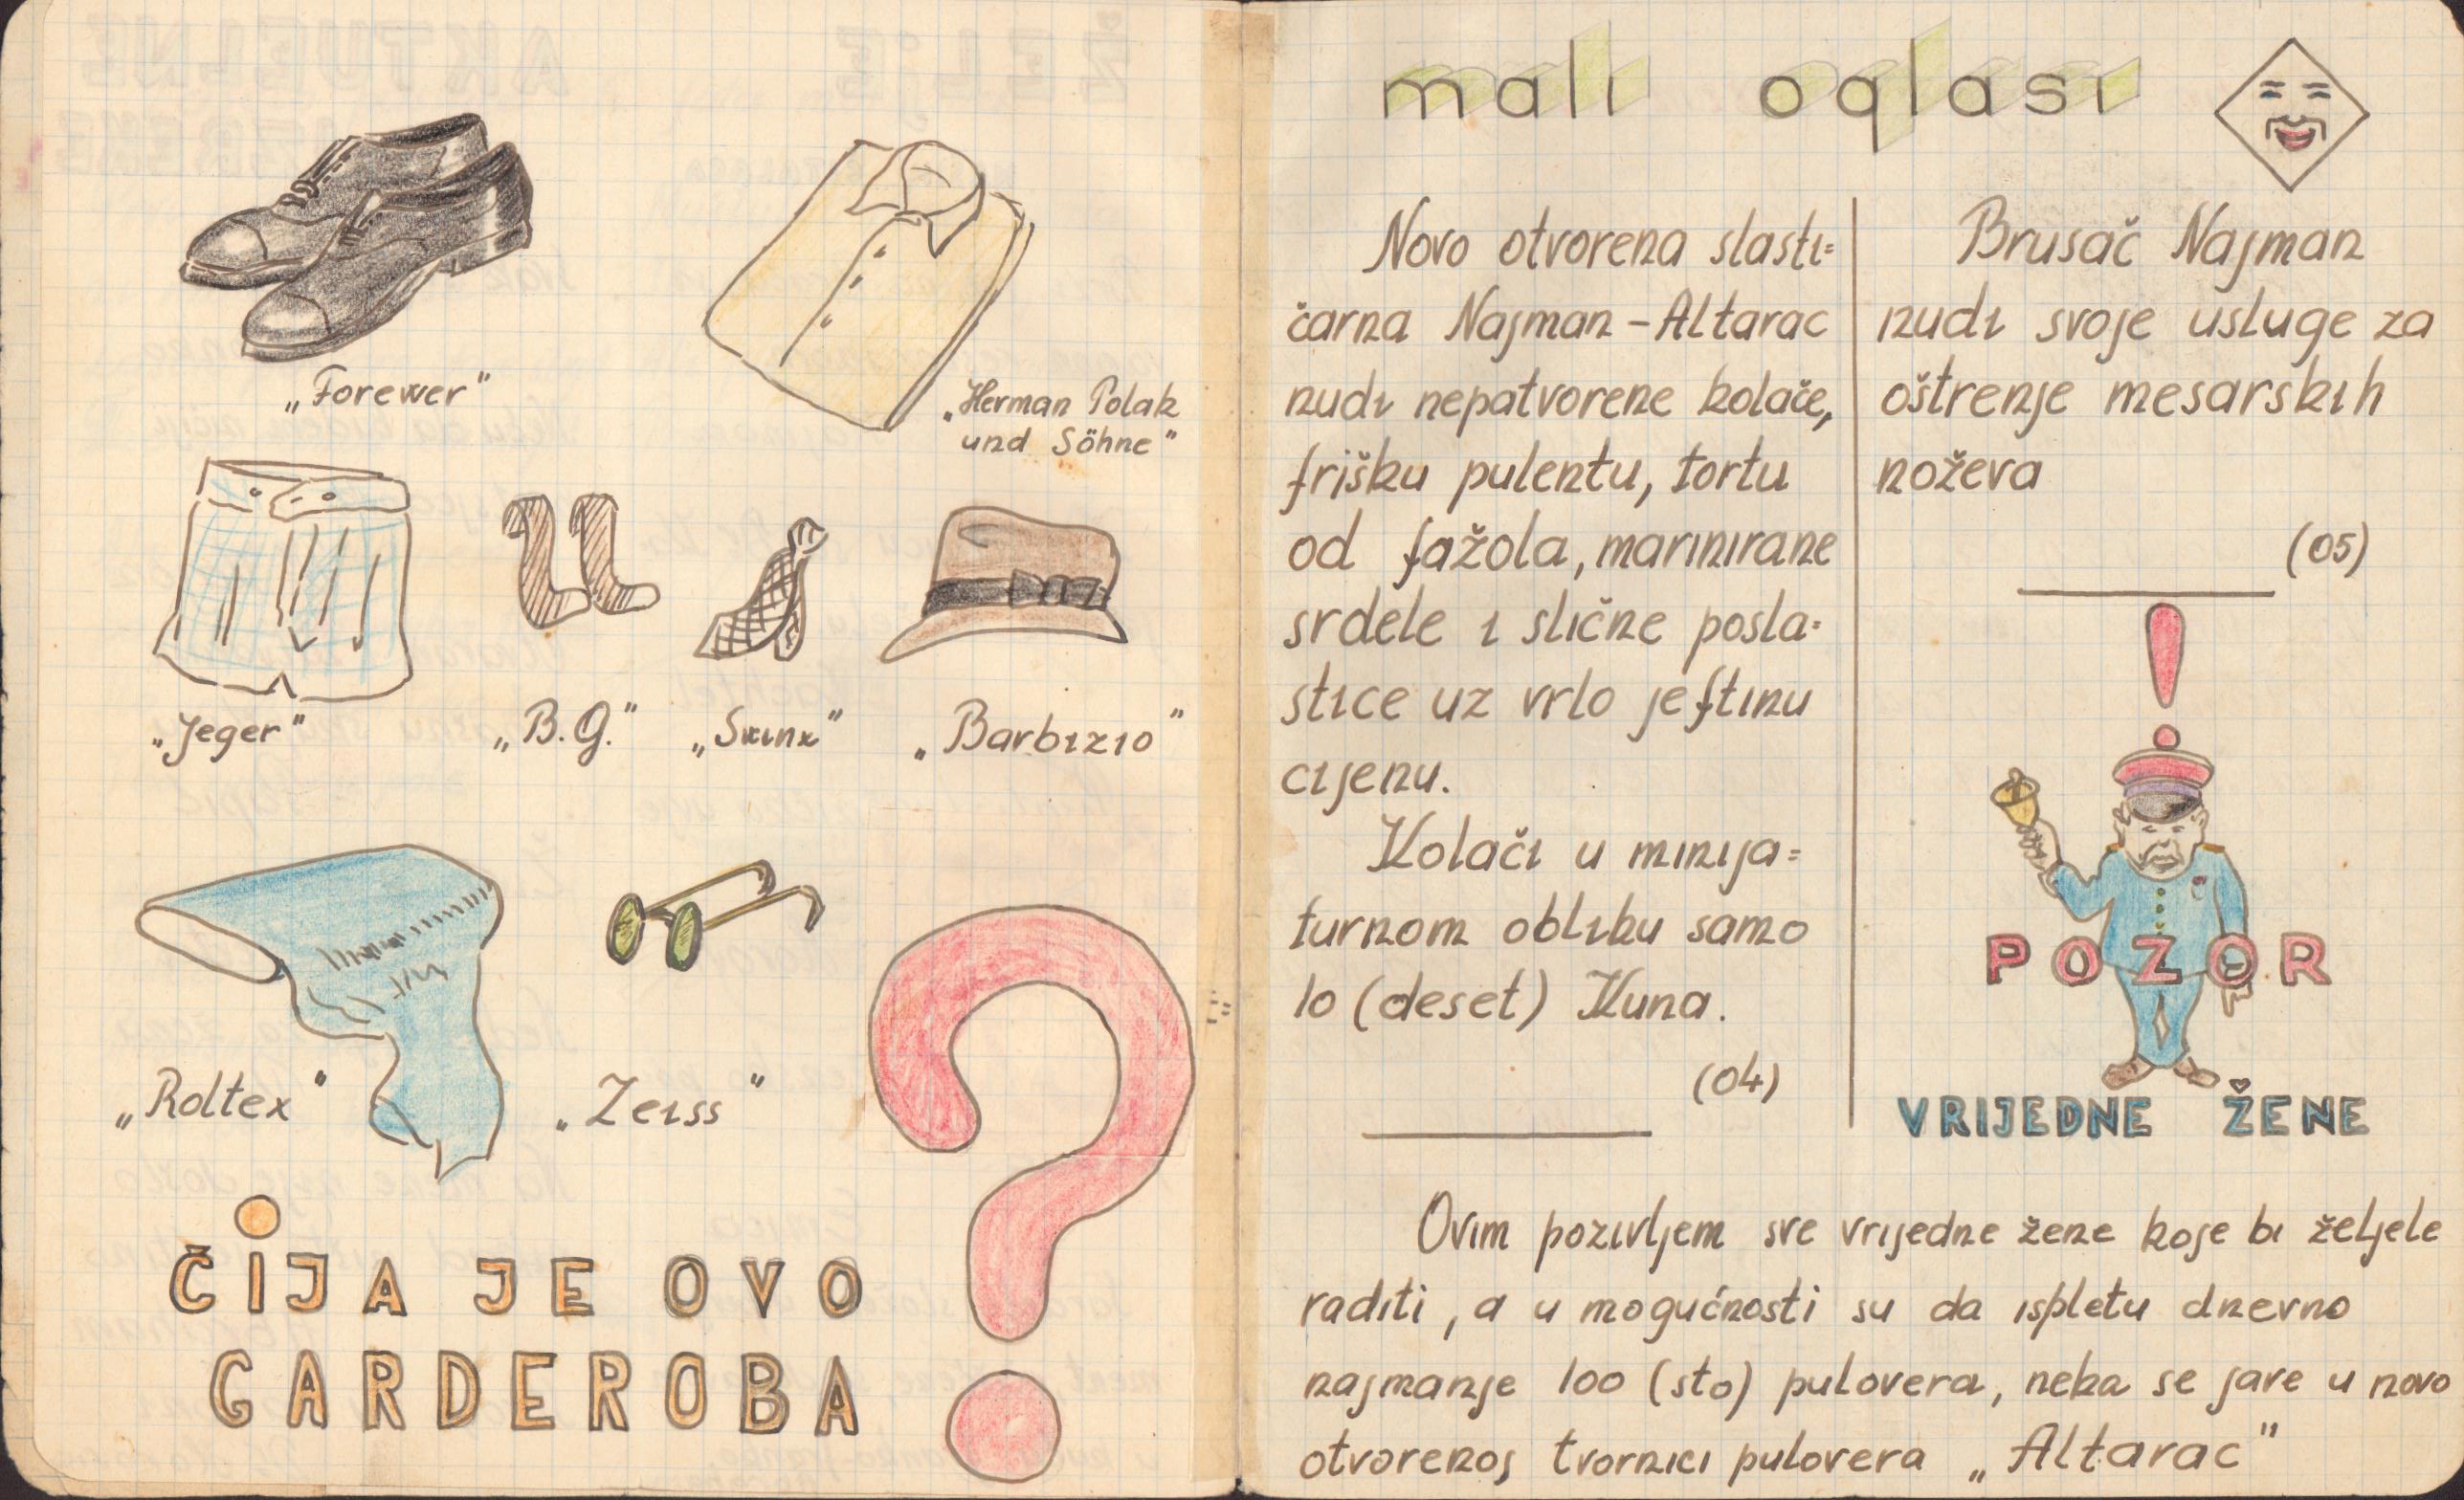 „Forewer"
„Herman Polak
und Söhne"
„Jeger"
„B.G."
„Skunx"
„Barbizio"
„Roltex"
„Zeiss"
?
ČIJA JE OVO
GARDEROBA
mali oglasi
Novo otvorena slasti=
čarna Najman-Altarac
nudi nepatvorene kolače,
frišku pulentu, tortu
od fažola, marinirane
srdele i slične posla=
stice uz vrlo jeftinu
cijenu.
Kolači u minija=
turnom obliku samo
10 (deset) Kuna.
(04)
Brusač Najman
nudi svoje usluge za
oštrenje mesarskih
noževa
(05)
!
POZOR
VRIJEDNE ŽENE
Ovim pozivljem sve vrijedne žene koje bi željele
raditi, a u mogućnosti su da ispletu dnevno
najmanje 100 (sto) pulovera, neka se jave u novo
otvorenoj tvornici pulovera „Altarac"